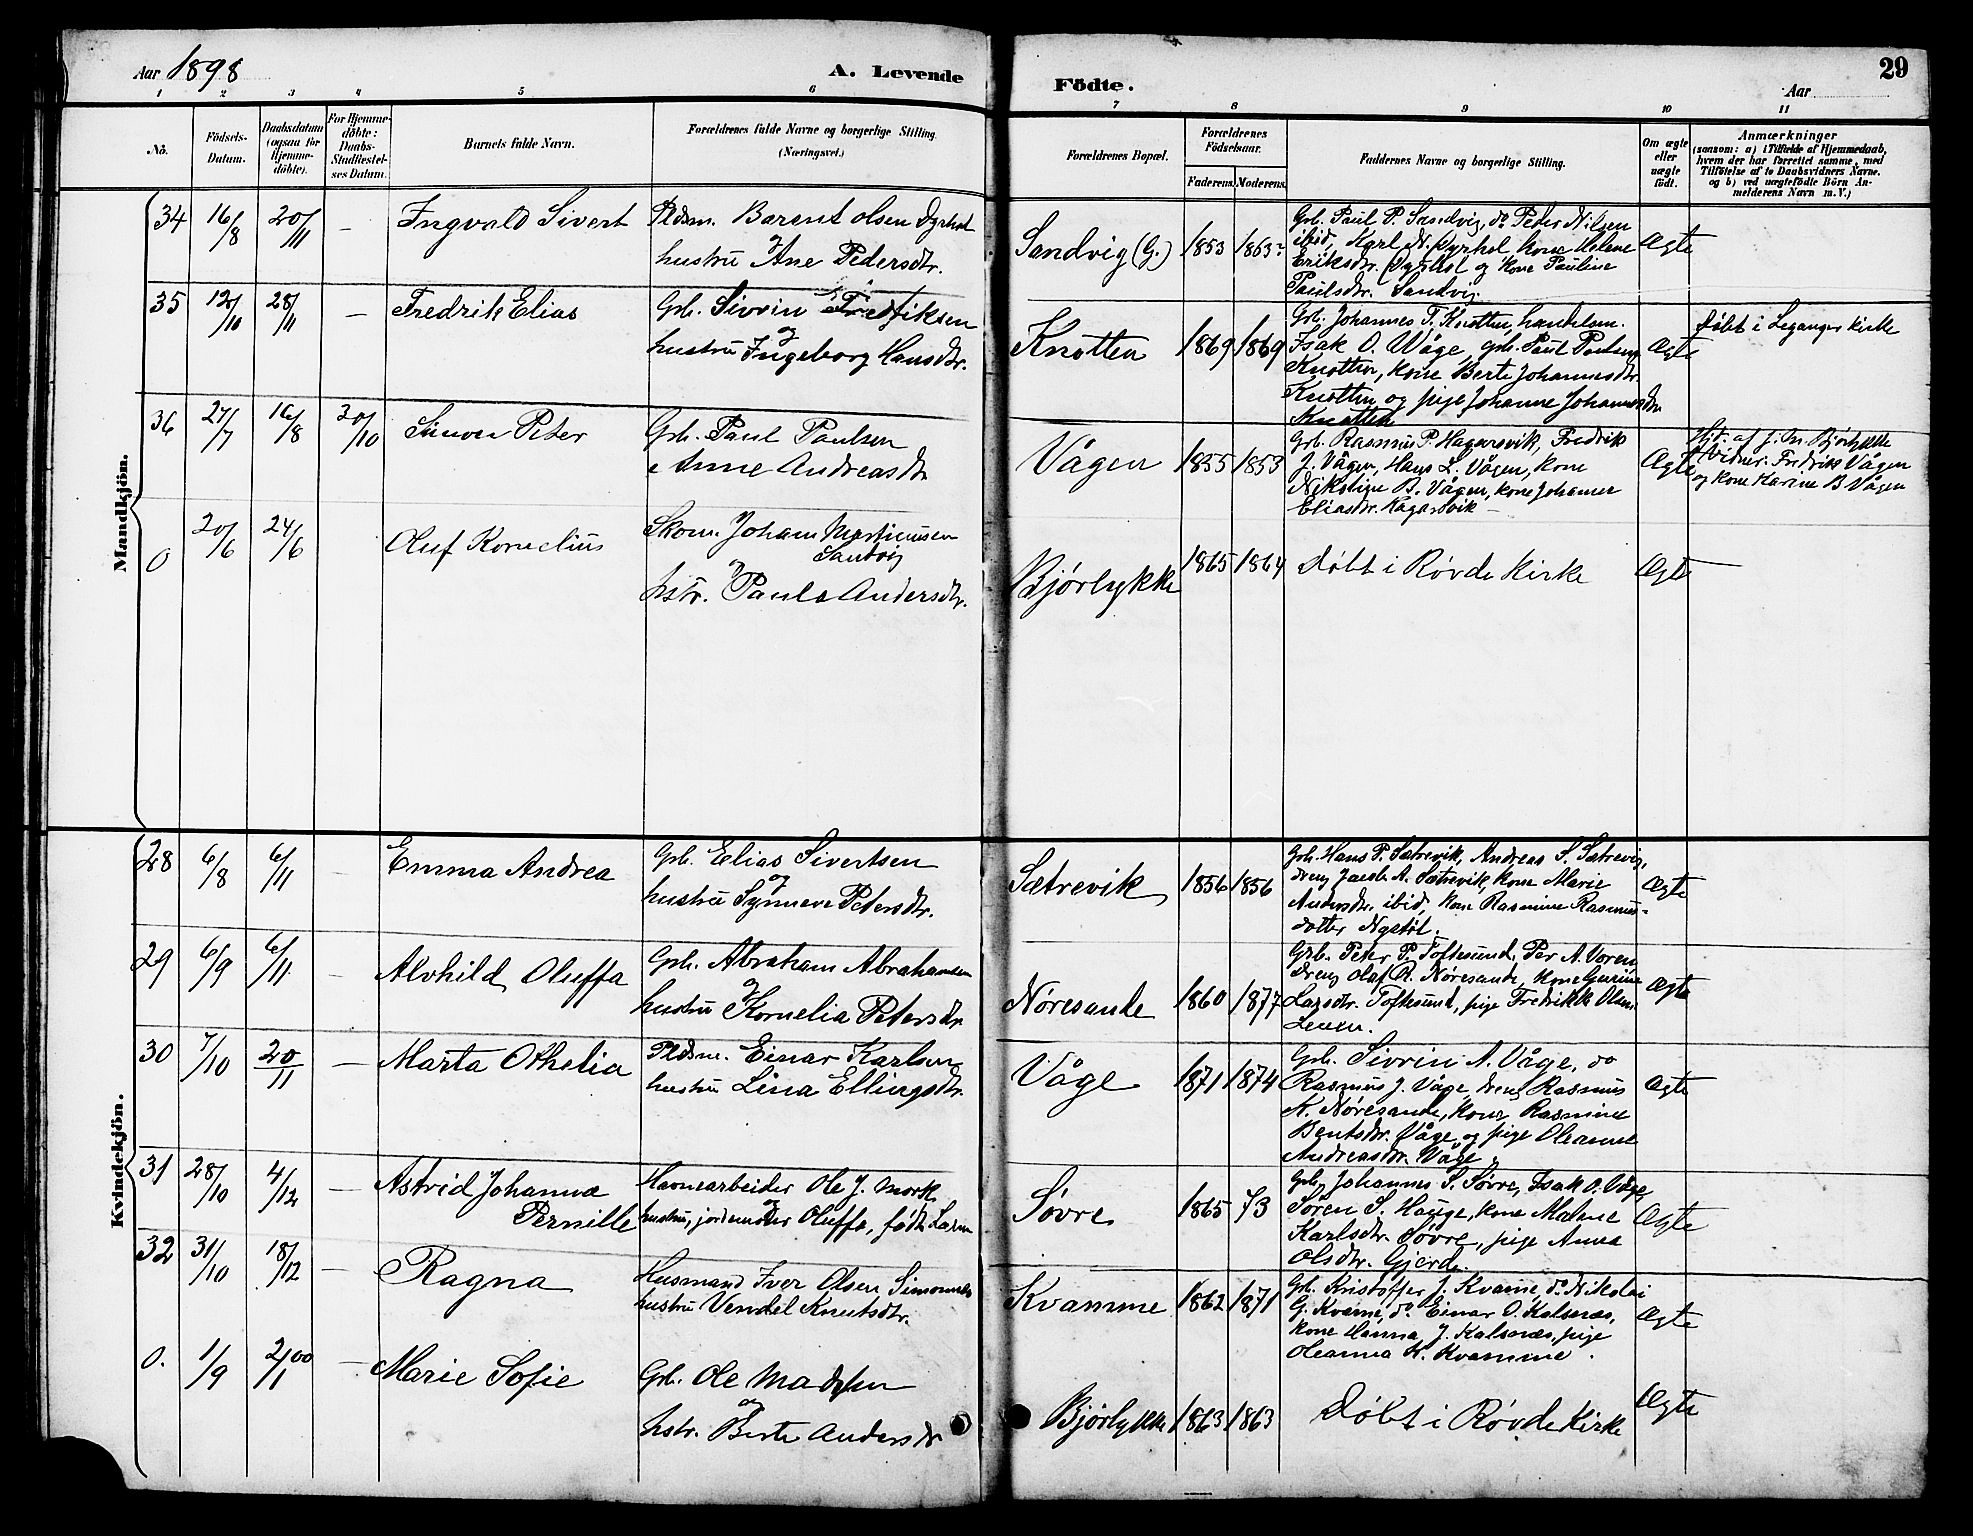 Aar 1898
A. Levende
Födte.
29
Aar
1 2 3 4 5 6 7 8 9 10 11
No.
Födsels-
Datum.
Daabsdatum
(ogsaa for
Hjemme-
döbte).
For Hjemme-
döbte:
Daabs-
Stadfæstel-
ses Datum.
Barnets fulde Navn.
Forældrenes fulde Navne og borgerlige Stilling.
(Næringsvei.)
Forældrenes Bopæl.
Forældrenes
Födselsaar.
Faderens. Moderens.
Faddernes Navne og borgerlige Stilling.
Om ægte
eller
uægte
födt.
Anmærkninger
(saasom: a) i Tilfælde af Hjemmedaab,
hvem der har forrettet samme, med
Tilföielse af to Daabsvidners Navne.
og b) ved uægtefödte Börn An-
melderens Navn m. V.)
Mandkjön.
34 16/8 20/11 –
Ingvald Sivert
Pldsm. Barent Olsen Dyrhol
og
hustru Ane Pedersdtr.
Sandvig (G.)
1853 1863
Grb. Paul P. Sandvig, do Peder Nilsen
ibid, Karl N. Dyrhol, kone Helene
Eriksdtr. Dyrhol og kone Pauline
Paulsdtr. Sandvig
Ægte
35 12/10 28/11 –
Fredrik Elias
Grb. Sivrin Fredriksen
og
hustru Ingeborg Hansdtr.
Knotten
1869 1869
Grb. Johannes T. Knotten, handelsm.
Isak O. Våge, grb. Paul Paulsen
Knotten, kone Berte Johannesdtr.
Knotten og pige Johanne Johannesdtr
Knotten
Ægte
døbt i Leganger kirke
36 27/7 16/8 30/10
Simon Peter
Grb. Paul Paulsen
Anne Andreasdtr
Vågen
1855 1853
Grb. Rasmus P. Hagarsvik, Fredrik
J. Vågen, Hans L. Vågen, kone
Nikoline B. Vågen, kone Johanne
Eliasdtr. Hagarsvik –
Ægte
Hjd. af J. M. Bjørlykke
Vidner. Fredrik Vågen
og kone Karine B Vågen
0 20/6 24/6
Oluf Kornelius
Skom. Johan Martinusen
Sandvig
og
hstr. Paula Andersdtr.
Bjørlykke
1865 1864
Døbt i Røvde Kirke
Ægte
Kvindekjön.
28 6/8 6/11 –
Emma Andrea
Grb. Elias Sivertsen
og
hustru Synneve Petersdtr.
Sætrevik
1856 1856
Grb. Hans P. Sætrevik, Andreas S. Sætrevig,
dreng Jacob A. Sætrevik, kone Marie
Andersdtr. ibid, kone Rasmine Rasmus-
dotter Nystøl.
Ægte
29 6/9 6/11 –
Alvhild Oluffa
Grb. Abraham Abrahamsen
og
hustru Kornelia Petersdtr
Nøresande
1860 1877
Grb. Peter P. Toftesund, Per A. Voren
dreng Olaf A. Nøresande, kone Gurine
Larsdtr. Toftesund, pige Fredrikke Olsen
Ægte
30 7/10 20/11 –
Marta Othelia
Pldsm. Einar Karlsen
hustru Lina Ellingsdtr.
Våge
1871 1874
Grb. Sivrin A. Våge, do
Rasmus J. Våge, dreng Rasmus
K. Nøresande, kone Rasmine
Bentsdtr. Våge og pige Oleanne
Andreasdtr. Våge
Ægte
31 28/10 4/12 –
Astrid Johanna
Pernille
Havnearbeider Ole J. Mork
og
hustru, jordemoder Oluffa, født Larsen
Søvre
1865 73
Grb. Johannes S. Søvre, Isak O. Våge,
Søren S. Hauge, kone Malene
Karlsdtr. Søvre, pige Anna
Olsdtr. Gjerde.
Ægte
32 31/10 18/12 –
Ragna
Husmand Iver Olsen Simonnes
hustru Vendel Knutsdtr.
Kvamme
1862 1871
Grb. Kristoffer J. Kvame, do Nikolai
G. Kvame, do Einar O. Kalsnæs,
kone Hanna J. Kalsnæs, pige
Oleanna K. Kvamme.
Ægte
0. 1/9 2/1 00 –
Marie Sofie
Grb. Ole Madssen
og
hstr. Berte Andersdtr
Bjørlykke
1863 1863
Døbt i Røvde Kirke
Ægte